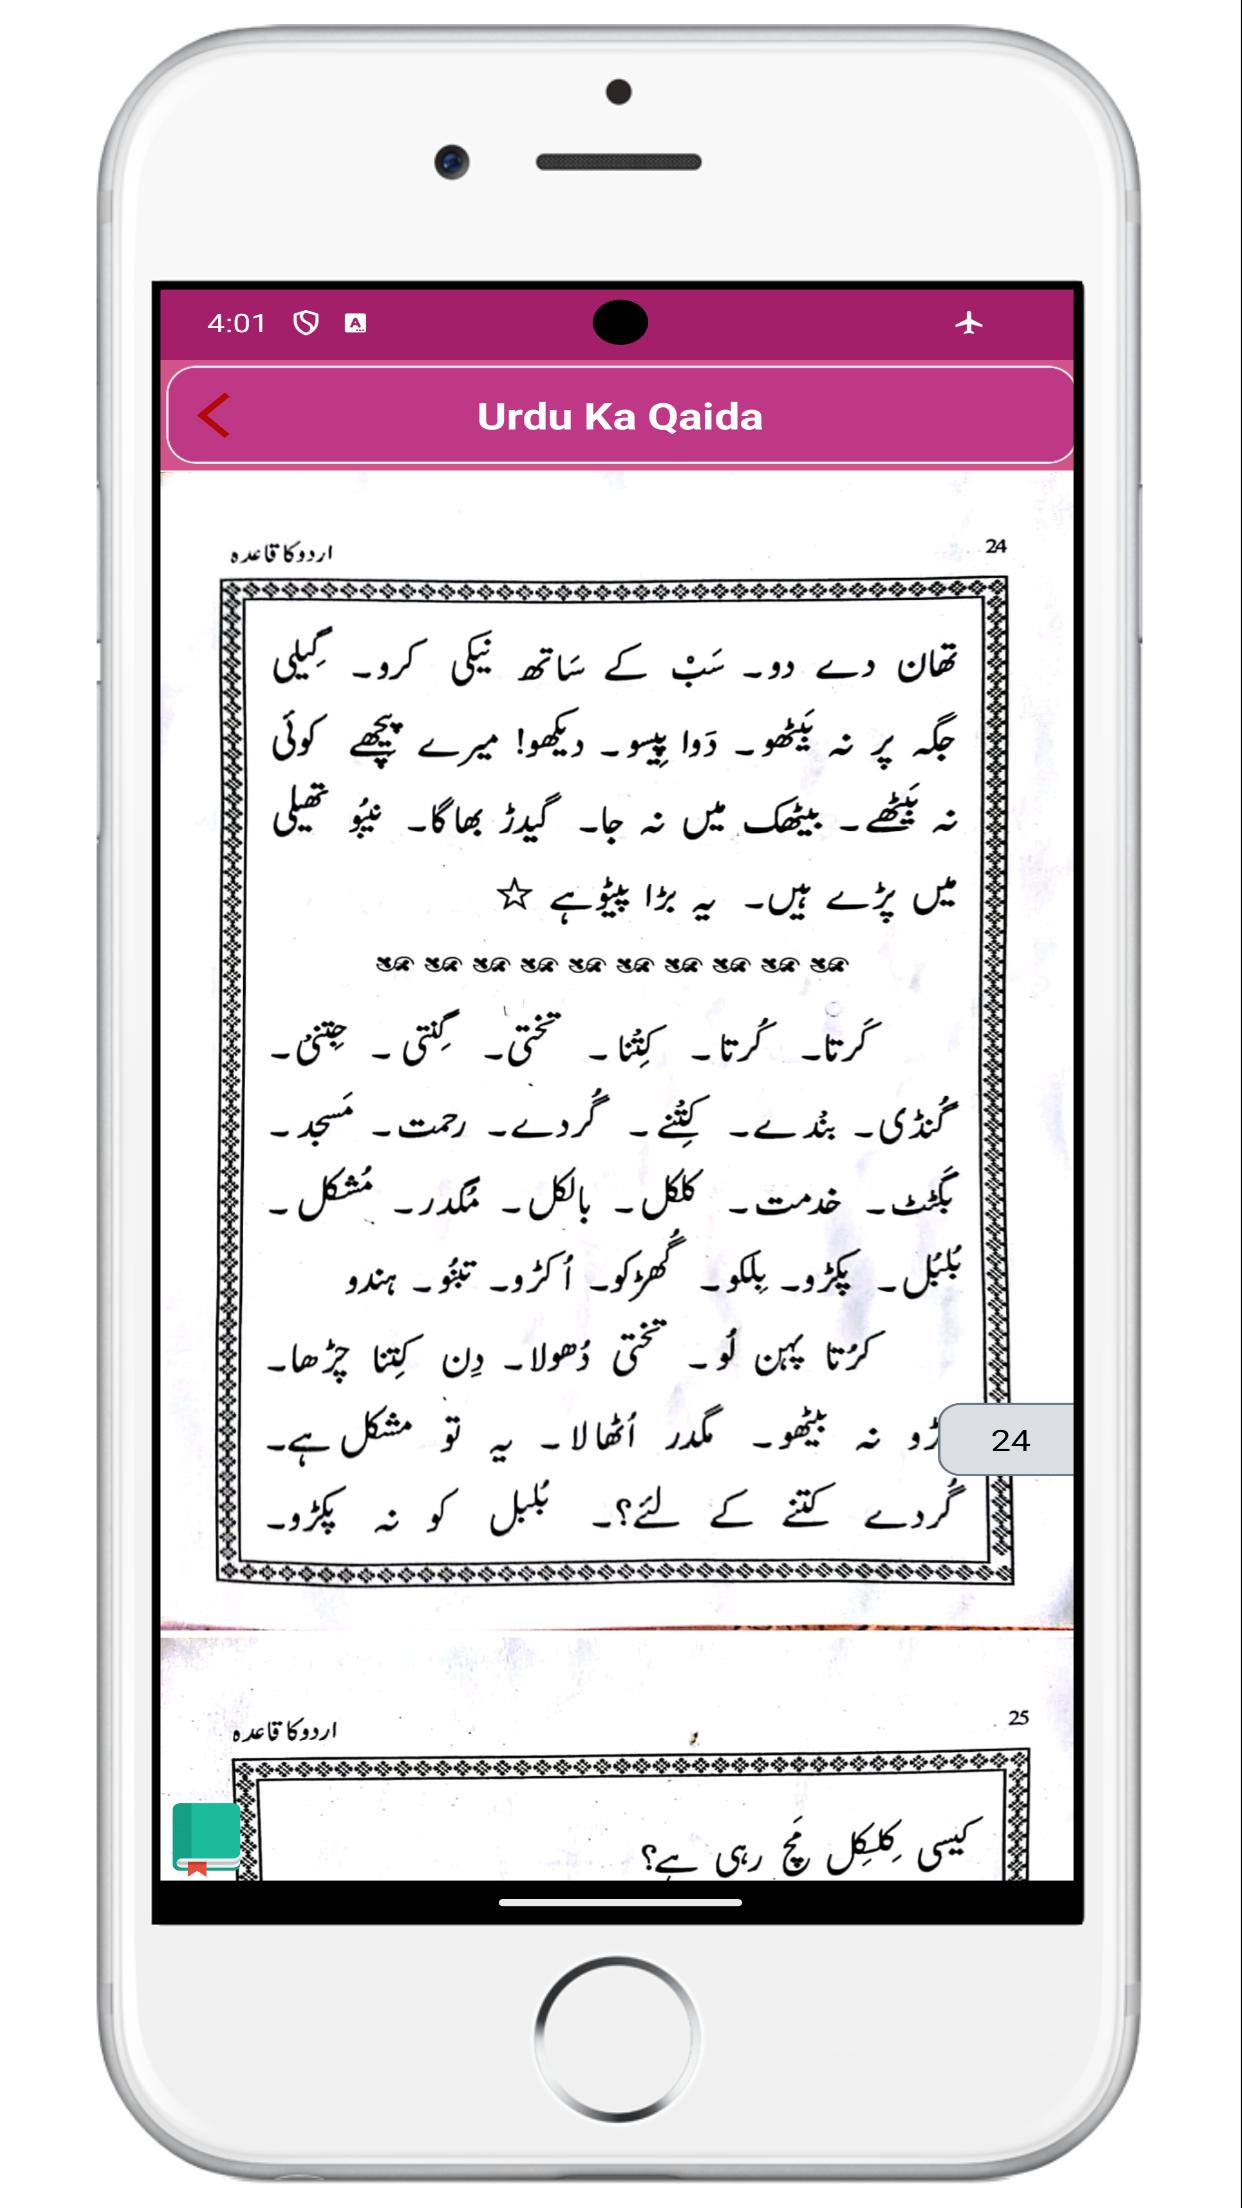 4:01
Urdu Ka Qaida
24
اردو کا قاعدہ
تھان دے دو۔ سَبْ کے سَاتھ نیکی کرو۔ گِیلی
جگہ پر نہ بَیٹھو۔ دَوا پِیسو۔ دیکھو! میرے پیچھے کوئی
نہ بَیٹھے۔ بیٹھک میں نہ جا۔ گیدڑ بھاگا۔ نیبُو تھیلی
میں پڑے ہیں۔ یہ بڑا پیٹُو ہے ☆
کَرتا۔ کُرتا۔ کِتْنا۔ تختی۔ گِنتی۔ جِتنی۔
گُنڈی۔ بنْدے۔ کِتْنے۔ گُردے۔ رحمت۔ مَسجد۔
بَگٹٹ۔ خدمت۔ کلکل۔ بالکل۔ مُگدر۔ مُشکل۔
بُلبُل۔ پکڑو۔ بِلکو۔ گُھڑکو۔ اُکڑو۔ تنبُو۔ ہندو
کرُتا پہن لُو۔ تختی دُھولا۔ دِن کِتنا چڑھا۔
ڑو نہ بیٹھو۔ مگدر اُٹھا لا۔ یہ تو مشکل ہے۔
24
گُردے کتنے کے لئے؟۔ بُلبل کو نہ پکڑو۔
25
اردو کا قاعدہ
کیسی کِلکِل مَچ رہی ہے؟